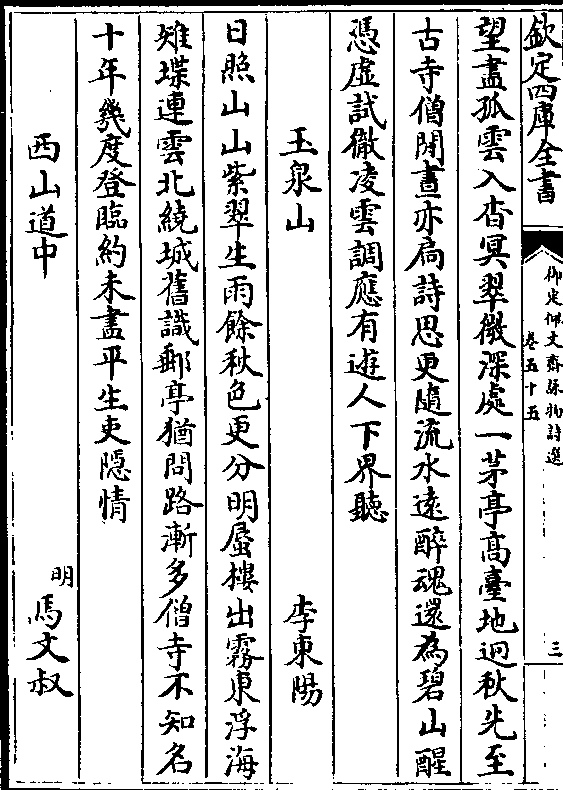 欽定四庫全書
御定佩文齋詠物詩選
卷五十五
三
望盡孤雲入杳冥翠微深處一茅亭高臺地迥秋先至
古寺僧閒晝亦扃詩思更隨流水遠醉魂還為碧山醒
憑虛試徹凌雲調應有遊人下界聽
玉泉山 李東陽
日照山山紫翠生雨餘秋色更分明蜃樓出霧東浮海
雉堞連雲北繞城舊識郵亭猶問路漸多僧寺不知名
十年幾度登臨約未盡平生吏隱情
西山道中 明馬文叔